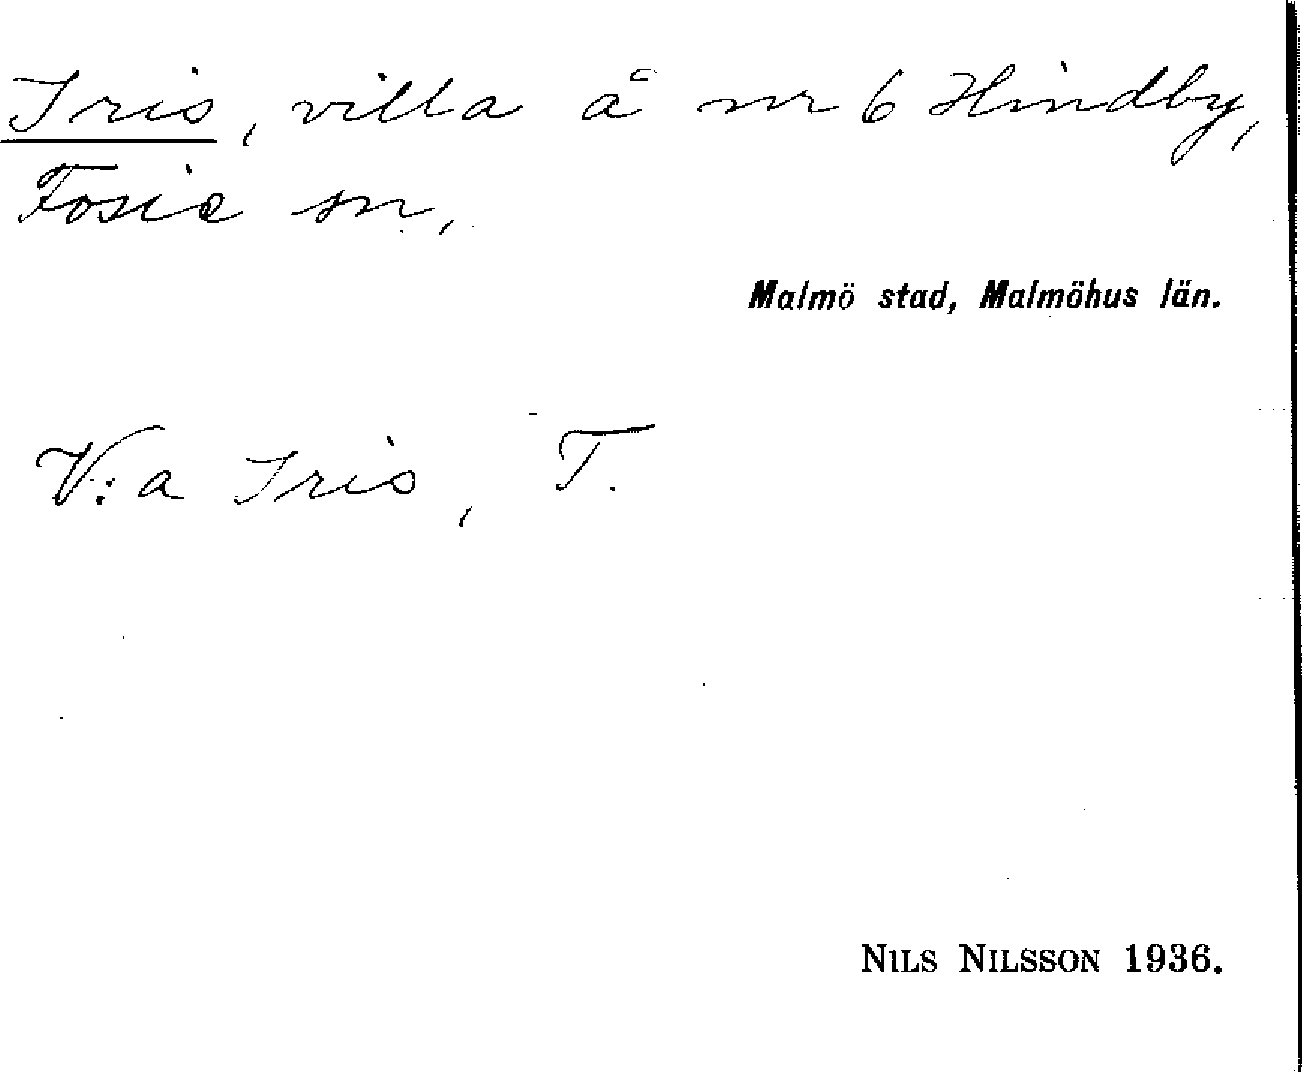 Iris, villa å nr 6 Hindby,
Fosie sn,
Malmö stad, Malmöhus län.
V:a Iris, T.
NILS NILSSON 1936.